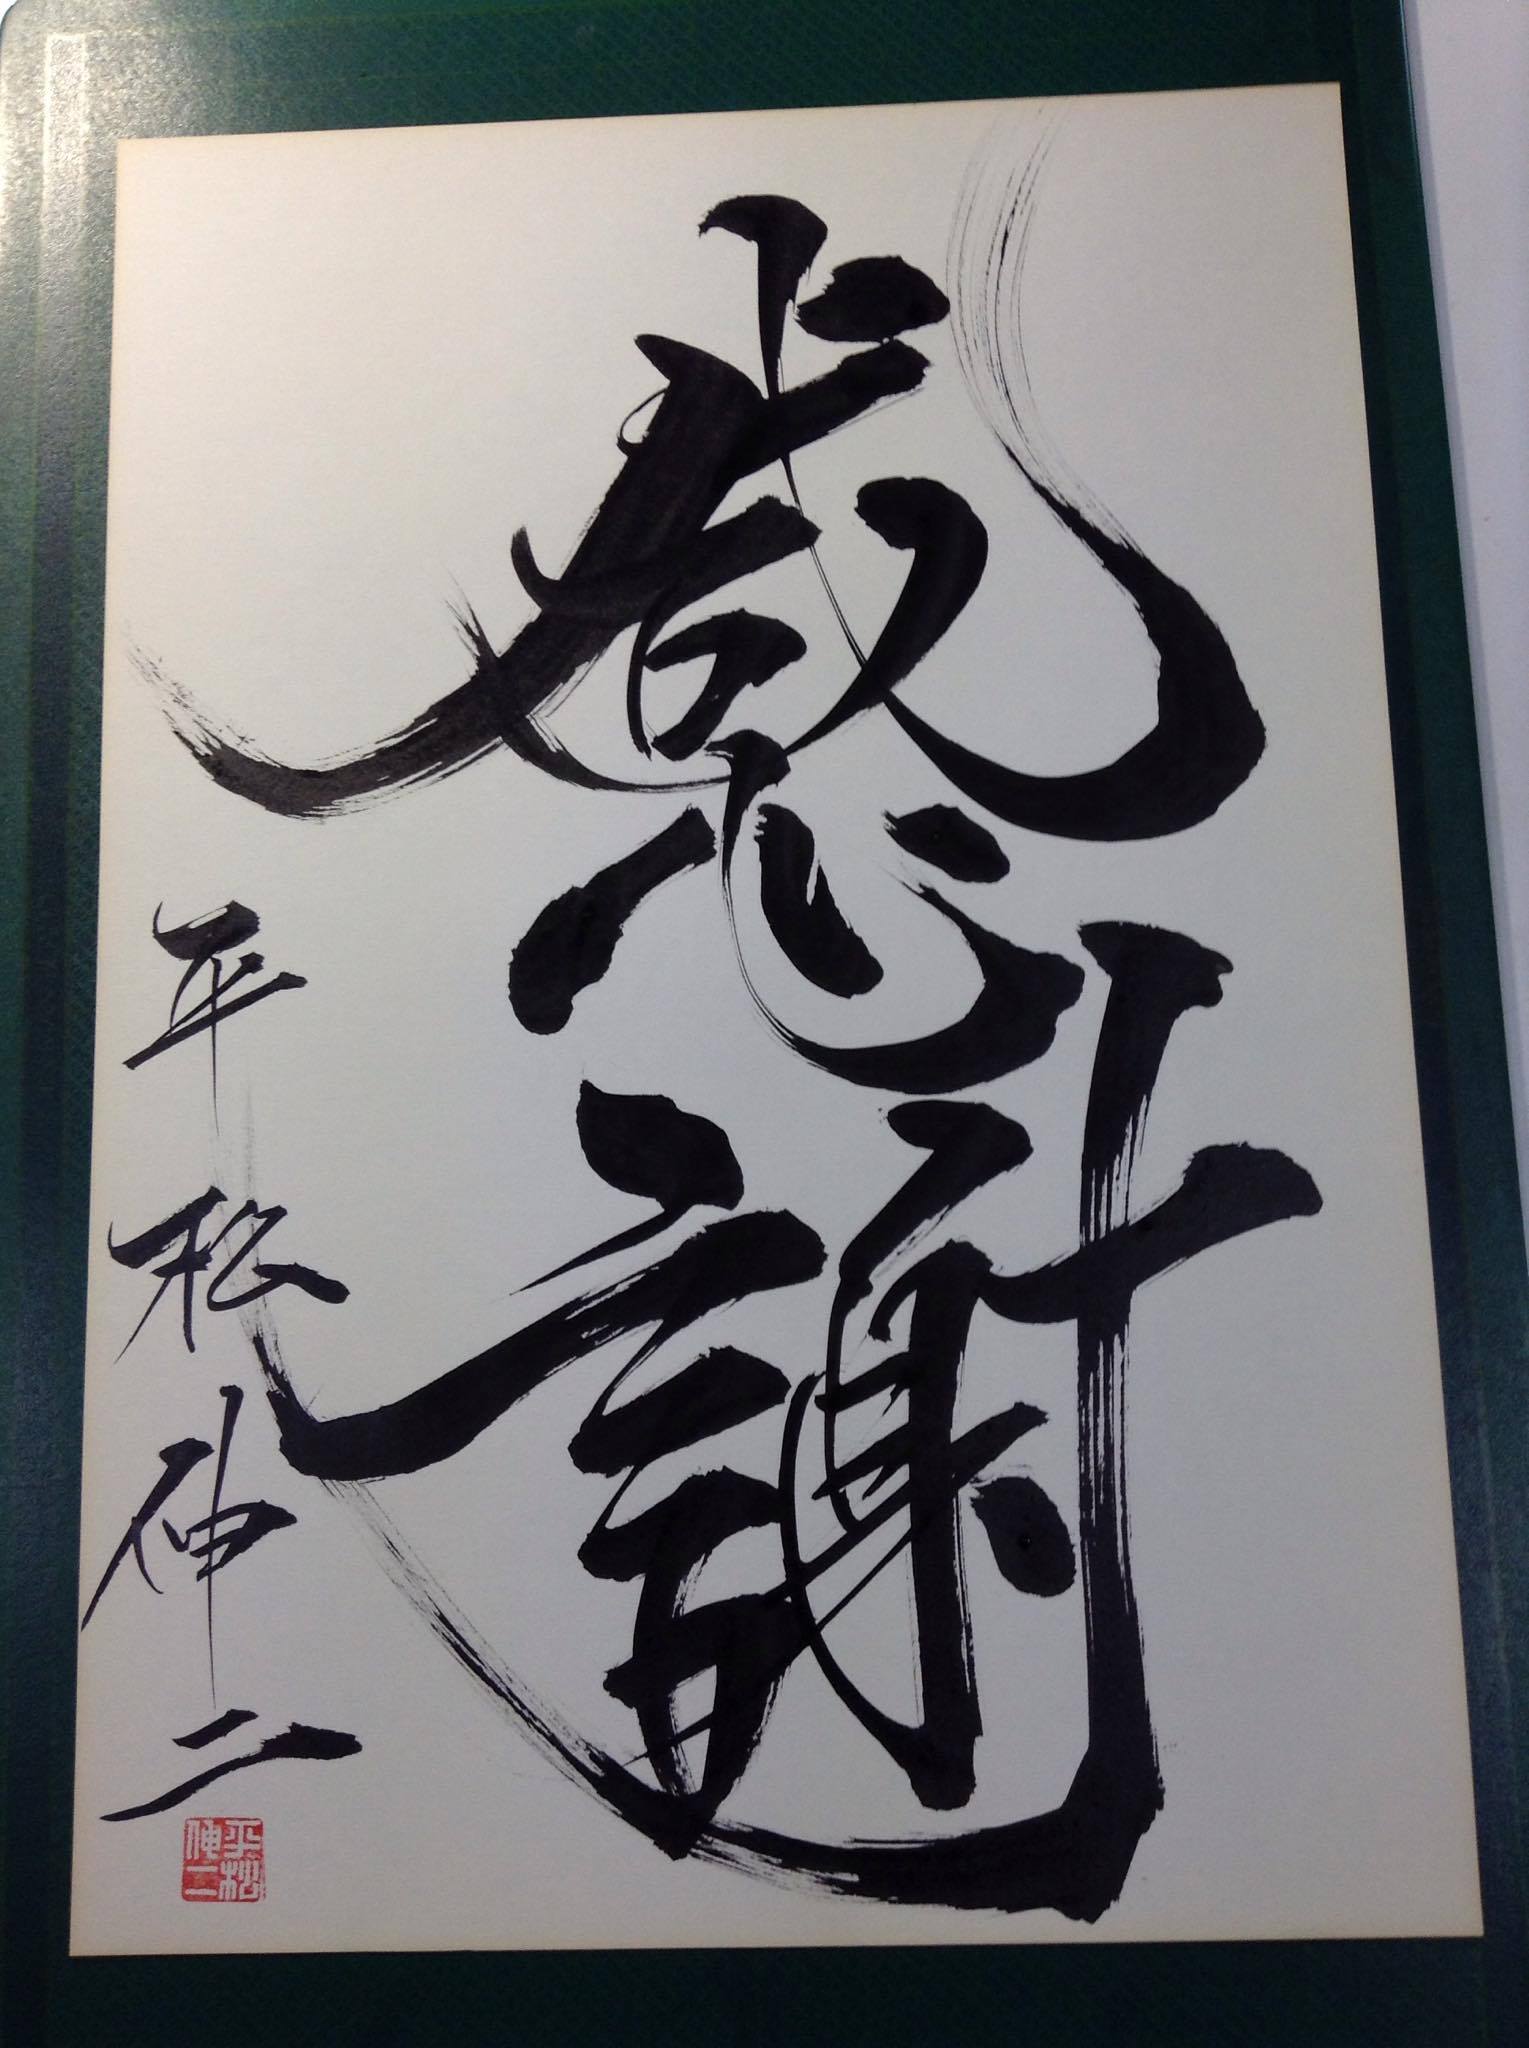 感謝
平松伸二
平松
伸二